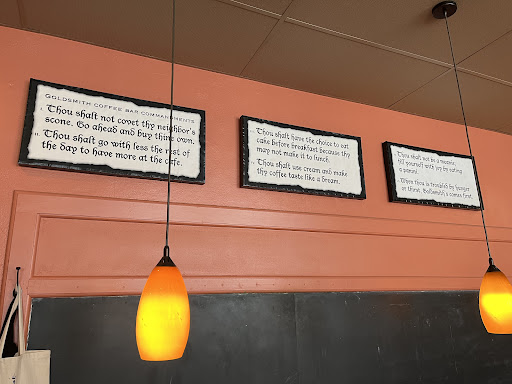 GOLDSMITH COFFEE BAR COMMANDMENTS
I. Thou shalt not covet thy neighbor's
scone. Go ahead and buy thine own.
II. Thou shalt go with less the rest of
the day to have more at the cafe.
Thou shalt have the choice to eat
cake before breakfast because thy
may not make it to lunch.
Thou shalt use cream and make
thy coffee taste like a dream.
Thou shalt not be a meanie,
fill yourself with joy by eating
a panini.
When thou is troubled by hunger
or thirst, Goldsmith's comes first.